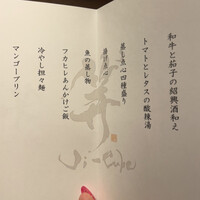 和牛と茄子の紹興酒和え
トマトとレタスの酸辣湯
蒸し点心四種盛り
揚げ点心
魚の蒸し物
フカヒレあんかけご飯
冷やし担々麺
マンゴープリン